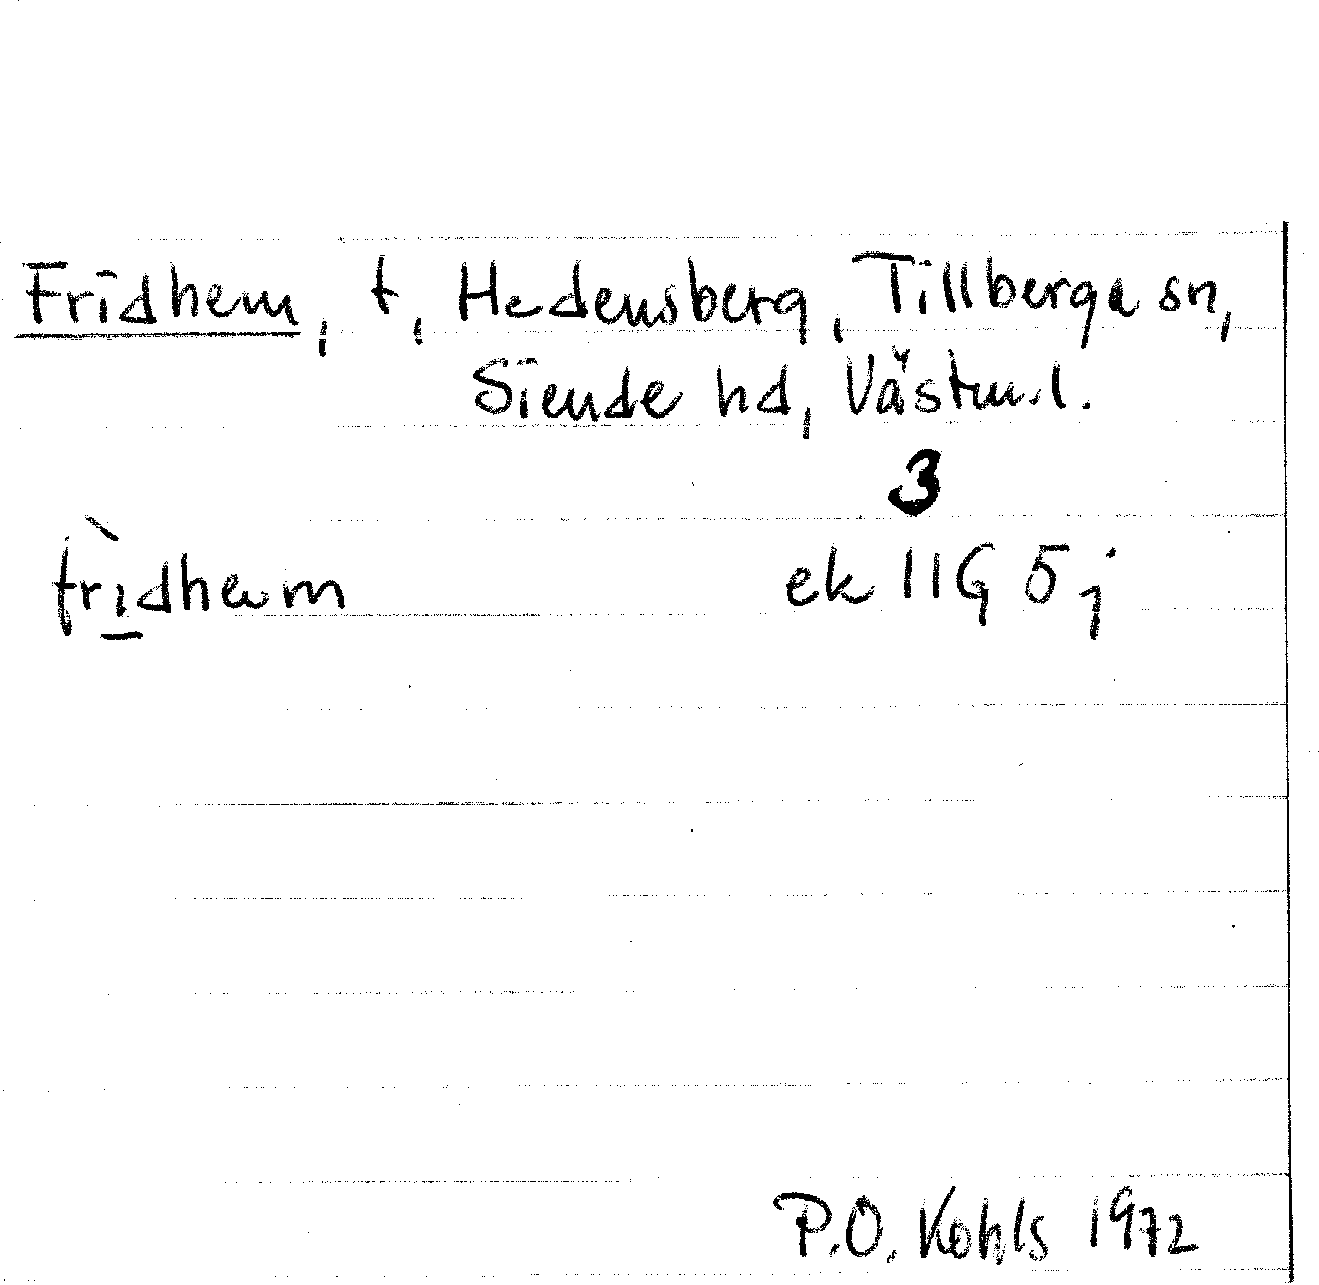 Fridhem, t, Hedensberg, Tillberga sn,
Siende hd, Västm.l.
3
frìdhem ek 11G 5j
P.O. Kohls 1972